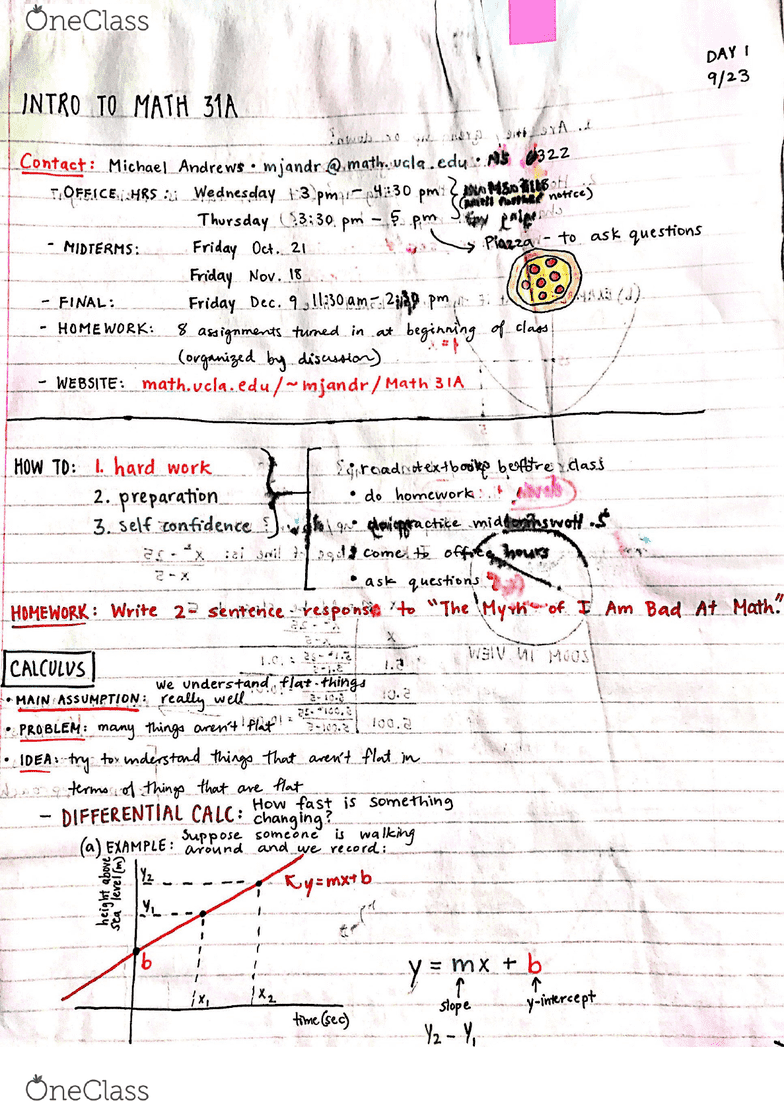 OneClass
DAY 1
9/23
INTRO TO MATH 31A
Contact: Michael Andrews • mjandr@math.ucla.edu • 6322
OFFICE HRS: Wednesday 3 pm - 4:30 pm notice)
Thursday 3:30 pm - 5 pm
Piazza - to ask questions
- MIDTERMS: Friday Oct. 21
Friday Nov. 18
- FINAL: Friday Dec. 9, 11:30 am - pm
- HOMEWORK: 8 assignments turned in at beginning of class
(organized by discussion)
- WEBSITE: math.ucla.edu/~mjandr/Math31A
HOW TO: 1. hard work
2. preparation
3. self confidence
read textbook before class
• do homework
• practice
come to office hours
• ask questions
HOMEWORK: Write 2 sentence response to "The Myth of I Am Bad At Math."
CALCULUS
• MAIN ASSUMPTION: we understand flat things
really well
• PROBLEM: many things aren't flat
• IDEA: try to understand things that aren't flat in
terms of things that are flat
- DIFFERENTIAL CALC: How fast is something
changing?
(a) EXAMPLE: Suppose someone is walking
around and we record:
height above
sea level (m)
y2
y1
y=mx+b
b
x1 x2
time (sec)
y = mx + b
slope
y-intercept
y2 - y1
OneClass